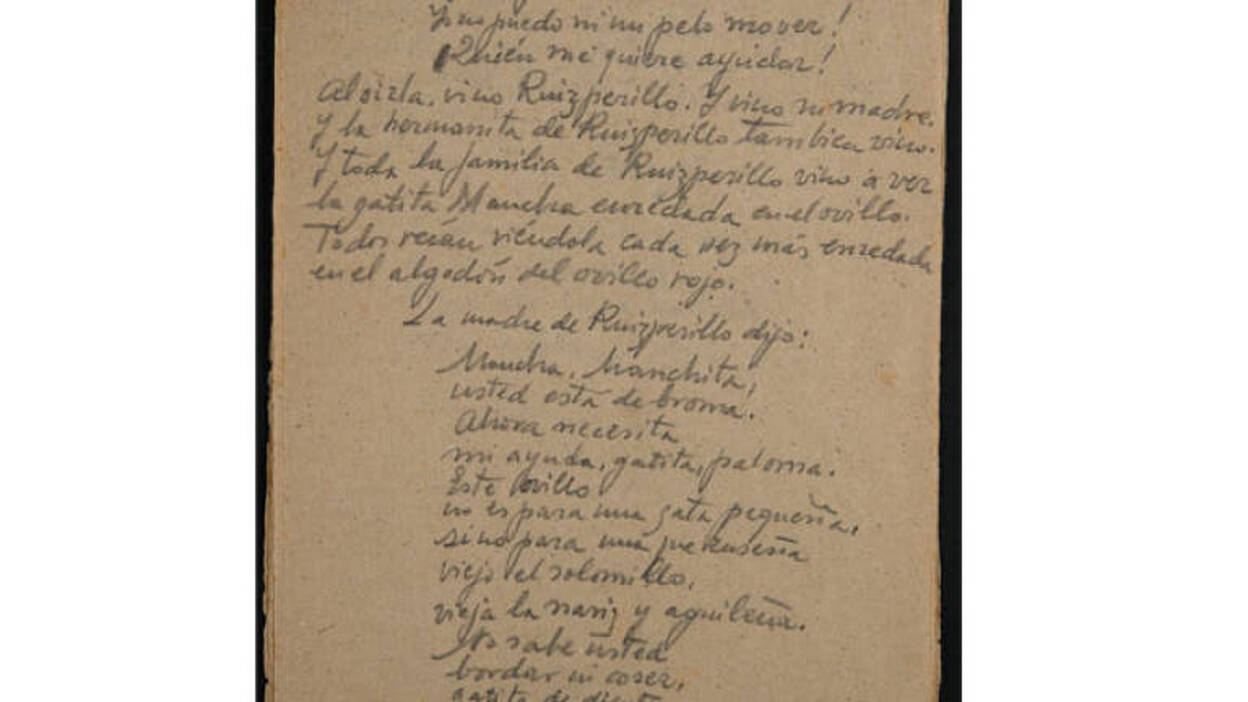 Yo no puedo ni un pelo mover!
¡Quién me quiere ayudar!
Al oirla, vino Ruizperillo. Y vino su madre.
Y la hermanita de Ruizperillo tambien vino.
Y toda la familia de Ruizperillo vino a ver
la gatita Mancha enredada en el ovillo.
Todos reían viéndola cada vez más enredada
en el algodón del ovillo rojo.
La madre de Ruizperillo dijo:
Mancha, Manchita,
usted está de broma.
Ahora necesita
mi ayuda, gatita, paloma.
Este ovillo
no es para una gata pequeña,
sino para una que enseña
viejo el solomillo,
vieja la nariz y aguileña.
No sabe usted
bordar ni coser,
gatita de